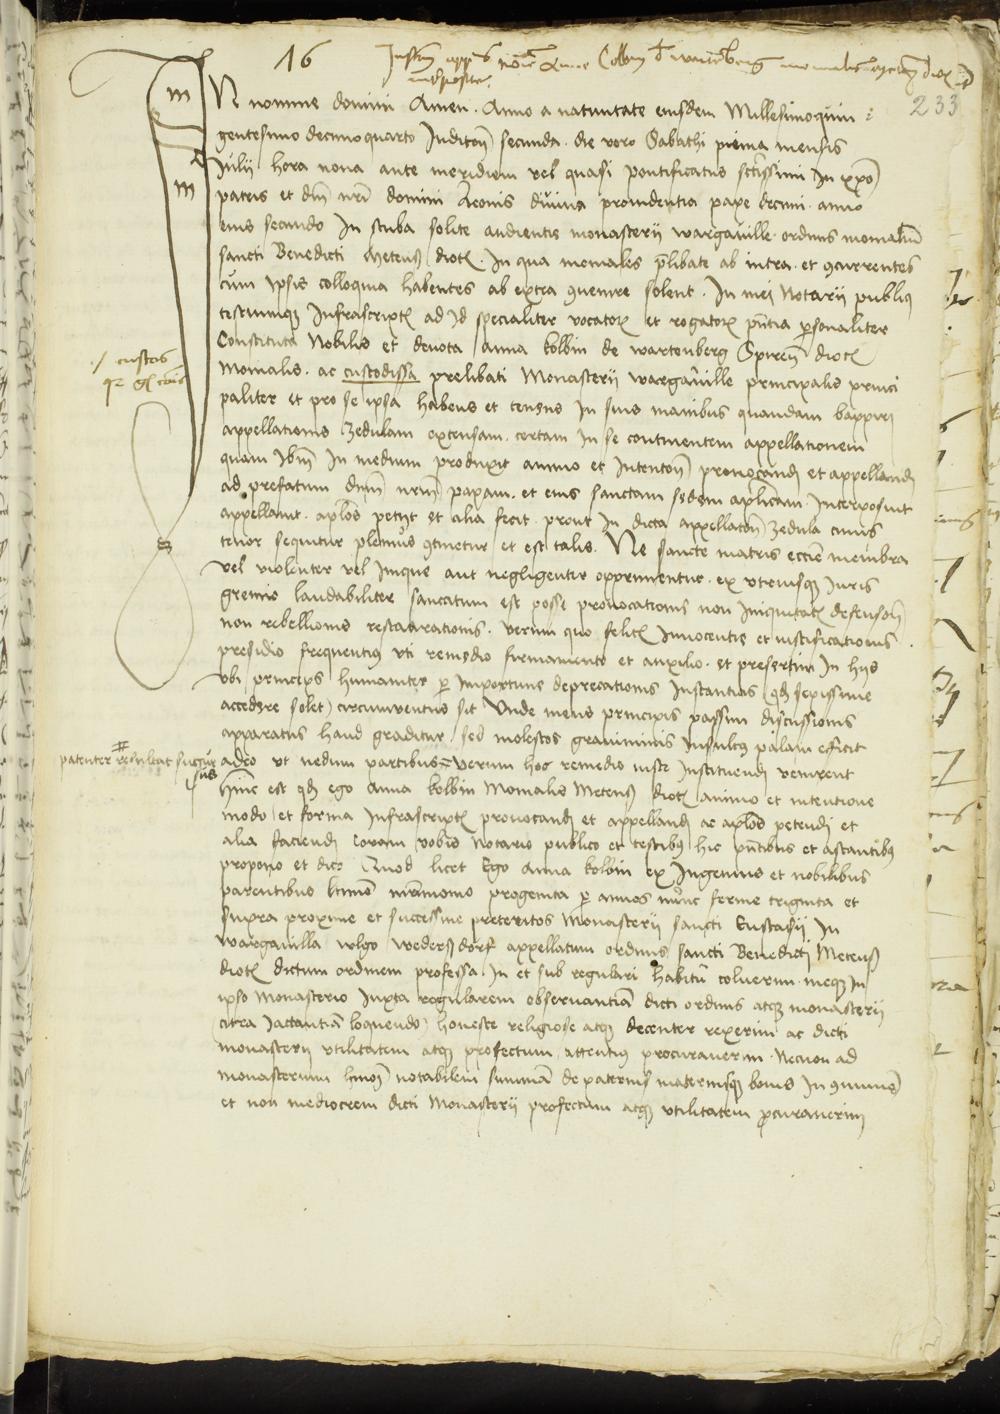 16
233
m
m
IN nomine domini Amen. Anno a natiuitate eiusdem Millesimoquin
gentesimo decimoquarto Inditoñ secunda. die vero Sabathi prima mensis
Julij hora nona ante meridiem vel quasi pontificatus sctissimi In xpo
patris et dm̃ nrĩ domini Leonis diuina prouidentia pape decimi. anno
eius secundo In stuba solite audientie monasterij wargauille. ordinis monialiũ
sancti Benedicti Meteñ dioc̃. In qua moniales p̃libate ab intra. et ꝯcurrentes
cum Ipsis colloquia habentes ab extra ꝯuenire solent. In mei Notarij publici
testiumqȝ Infrascript̃ ad Id specialiter vocatoꝝ et rogatoꝝ pñtia p̱sonaliter
Constituta Nobilis et deuota anna kolbin de wartenberg Spireñ dioc̃
Monialis. ac custodissa prelibati Monasterij wargauille principalis princi
paliter et pro se ipsa habens et tenens In suis manibus quandam bappirj
appellationis Zedulam extensam. certam In se continentem appellationem
quam Ibm̃ In medium produxit animo et Intentoñ prouocandj et appellandj
ad prefatum dnm̃ nrm̃ papam. et eius sanctam sedem aplicam̃. Interposuit
appellauit. aplõs petijt et alia fecit. prout In dicta appellatoñ Zedula cuius
tenor sequitur plenius ꝯtinetur et est talis. Ne sancte matris eccie membra
vel violenter vel Inique aut negligenter opprimentur. ex vtriusqȝ Juris
gremio laudabiliter sancitum est posse prouocationis non Iniquitat̃ defensoñ
non rebellionis restaurationis. verum quo felit̃ Innocentie et iustificationis
presidio frequentius vti remedio firmamento et auxilio. et presertim In hijs
vbi princeps humaniter p̱ Importune deprecationis Instantias (qd̃ sepissime
accedere solet) circumuentus sit Vnde mens principis passim discussionis
apparatus haud graditur. sed molestos grauiminis Insultus palam efficit
adeo vt nedum partibus verum hoc remedio iuste Instituendj venirent
hinc est qd̃ ego Anna kolbin Monialis Meteñ dioc̃ animo et intentione
modo et forma Infrascript̃ prouocandj et appellandj ac aplõs petendj et
alia faciendj Coram vobis Notario publico et testibus hic pñtibus et astantibus
propono et dico Quod licet Ego Anna kolbin ex Ingenuis et nobilibus
parentibus ltimõ mr̃imonio progenita p̱ annos nunc ferme triginta et
supra proxime et successiue preteritos Monasterij sancti Eustasij In
wargauilla wlgo wederßdorf appellatum ordinis sancti Benedictj Meteñ
dioc̃ dictum ordinem professa In et sub regulari habitũ coluerim meqȝ In
ipso Monasterio Iuxta regularem obseruantiã dicti ordinis atqȝ monasterij
(citra Jactantiã loquendo) honeste religiose atqȝ decenter rexerim ac dicti
monasterij vtilitatem atqȝ profectum attentius procurauerim. Necnon ad
monasterium hmõj notabilem summã de paternis maternisqȝ bonis In ꝯmunẽ
et non mediocrem dicti Monasterij profectum atqȝ vtilitatem p̱curauerim
./ custos
patenter resultat